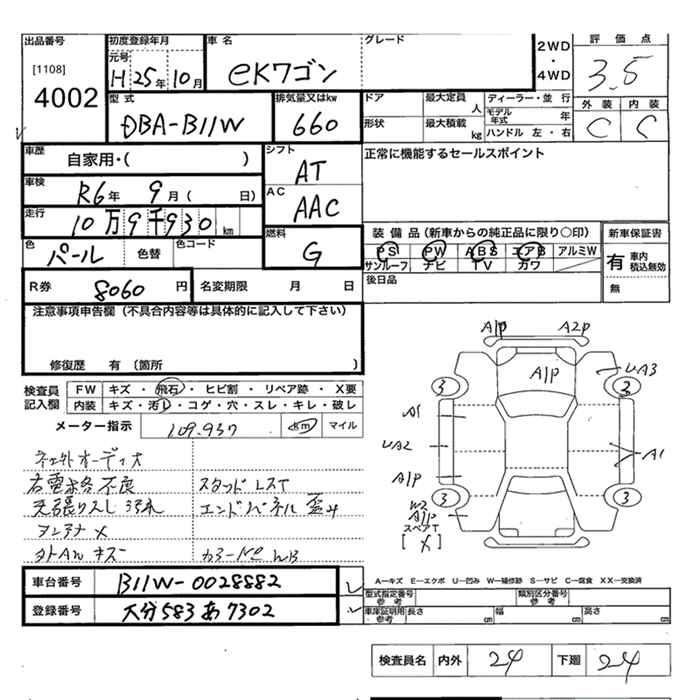 出品番号 初度登録年月 車名 グレード 評価点
[1108] 元号 2WD
4002 H 25年 10月 eKワゴン ・ 3.5
4WD
型式 排気量又はkw ドア 最大定員 人 ディーラー・並行 外装 内装
DBA-B11W 660 形状 最大積載 kg モデル年式 年 C C
ハンドル 左・右
車歴 自家用・( ) シフト AT 正常に機能するセールスポイント
車検 R6年 9月( 日) AC AAC
走行 10万9千930km
装備品(新車からの純正品に限り○印) 新車保証書
色 パール 色替 色コード 燃料 G PS PW ABS エアB アルミW 有 車内積込無効
サンルーフ ナビ TV カワ
R券 8060円 名変期限 月 日 後日品 無
注意事項申告欄(不具合内容等は具体的に記入して下さい)
修復歴 有(箇所 )
A1P A2P
A1P
UA3
3 3
A1
UA2 A1
A1P
3 3
W2
A1P
スペアT
[ ✗ ]
検査員記入欄 FW キズ・飛石・ヒビ割・リペア跡・X要
内装 キズ・汚レ・コゲ・穴・スレ・キレ・破レ
メーター指示 109.937 km マイル
オーディオ
不良 スタッド レスT
エンドパネル 歪み
アンテナ ✗
キズ WB
車台番号 B11W-0028882
登録番号 大分583あ7302
A−キズ E−エクボ U−凹み W−補修跡 S−サビ C−腐食 XX−交換済
型式指定番号 参考 類別区分番号 参考
車庫証明用参考 長さ cm 幅 cm 高さ cm
検査員名 内外 24 下廻 24